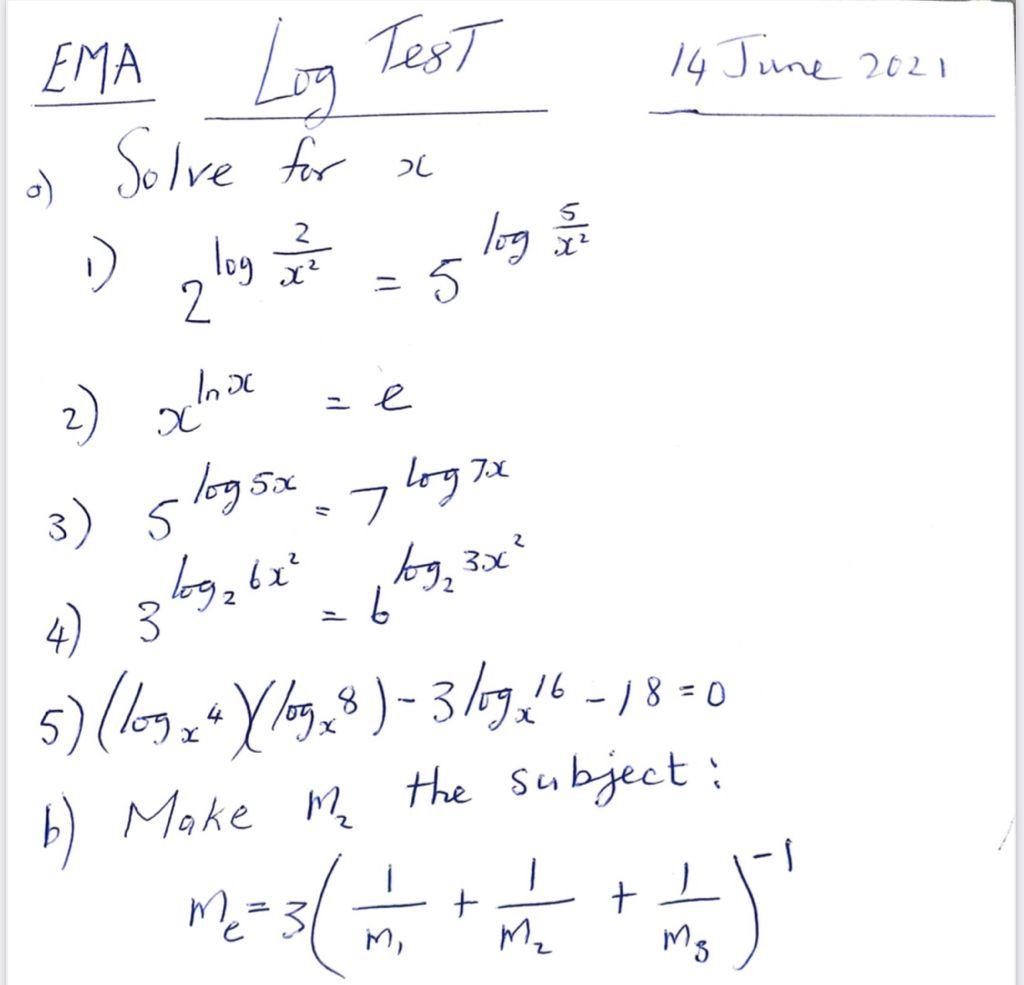 EMA Log Test 14 June 2021
a) Solve for x
1) 2^(log 2/x²) = 5^(log 5/x²)
2) x^(ln x) = e
3) 5^(log 5x) = 7^(log 7x)
4) 3^(log₂ 6x²) = 6^(log₂ 3x²)
5) (logₓ 4)(logₓ 8) - 3 logₓ 16 - 18 = 0
b) Make m₂ the subject :
mₑ = 3(1/m₁ + 1/m₂ + 1/m₃)^-1